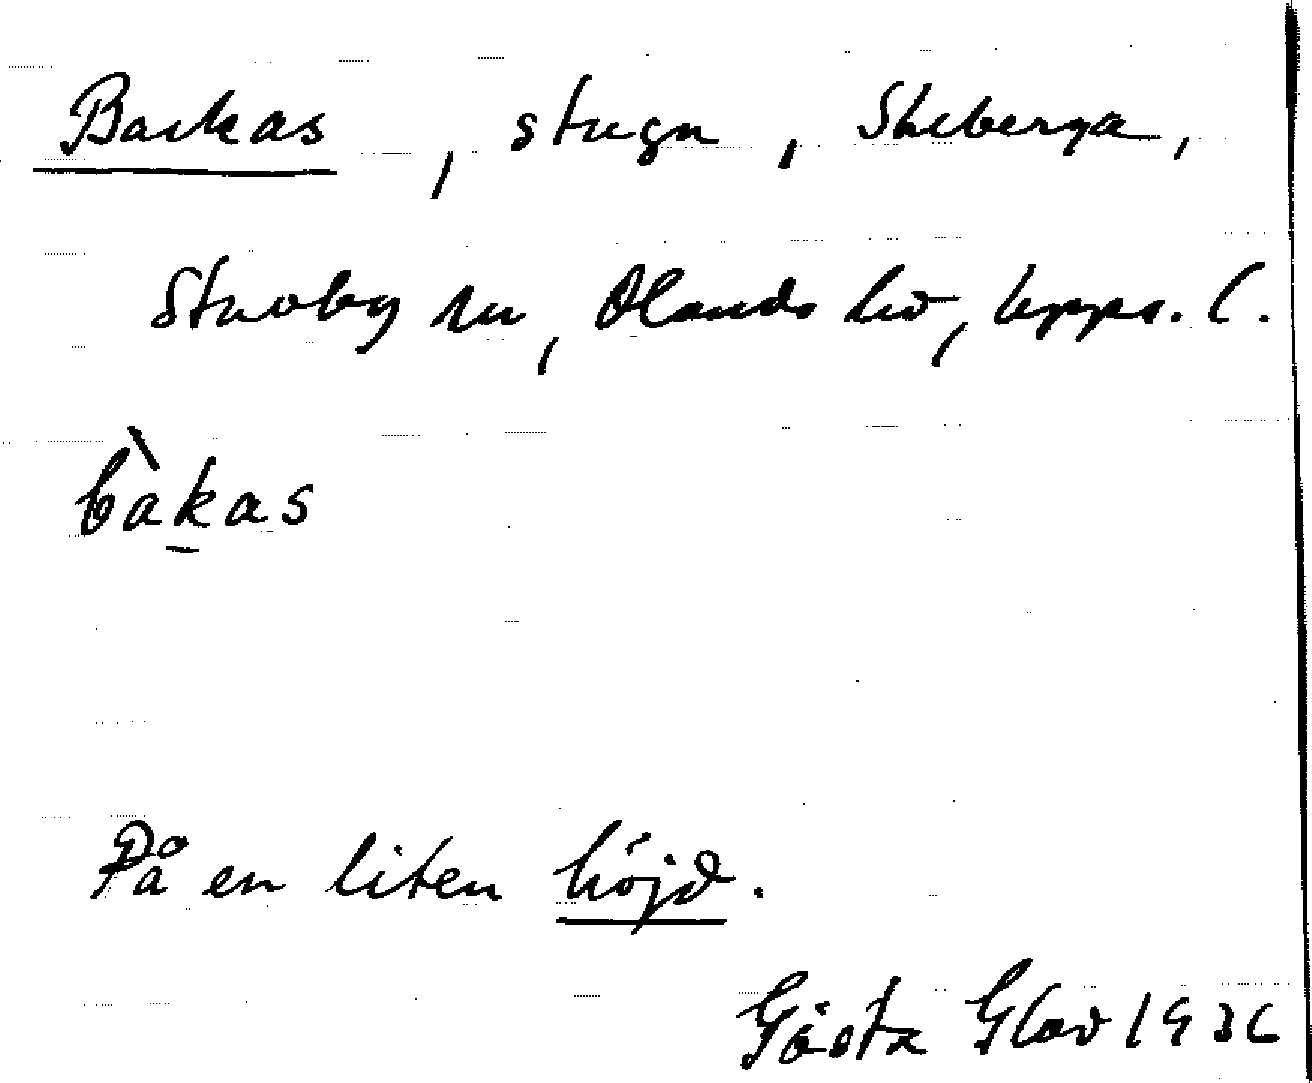 Backas, stuga, Skeberga,
Stavby sn, Olands hd, Upps. l.
bàkas
På en liten höjd.
Gösta Glad 1936